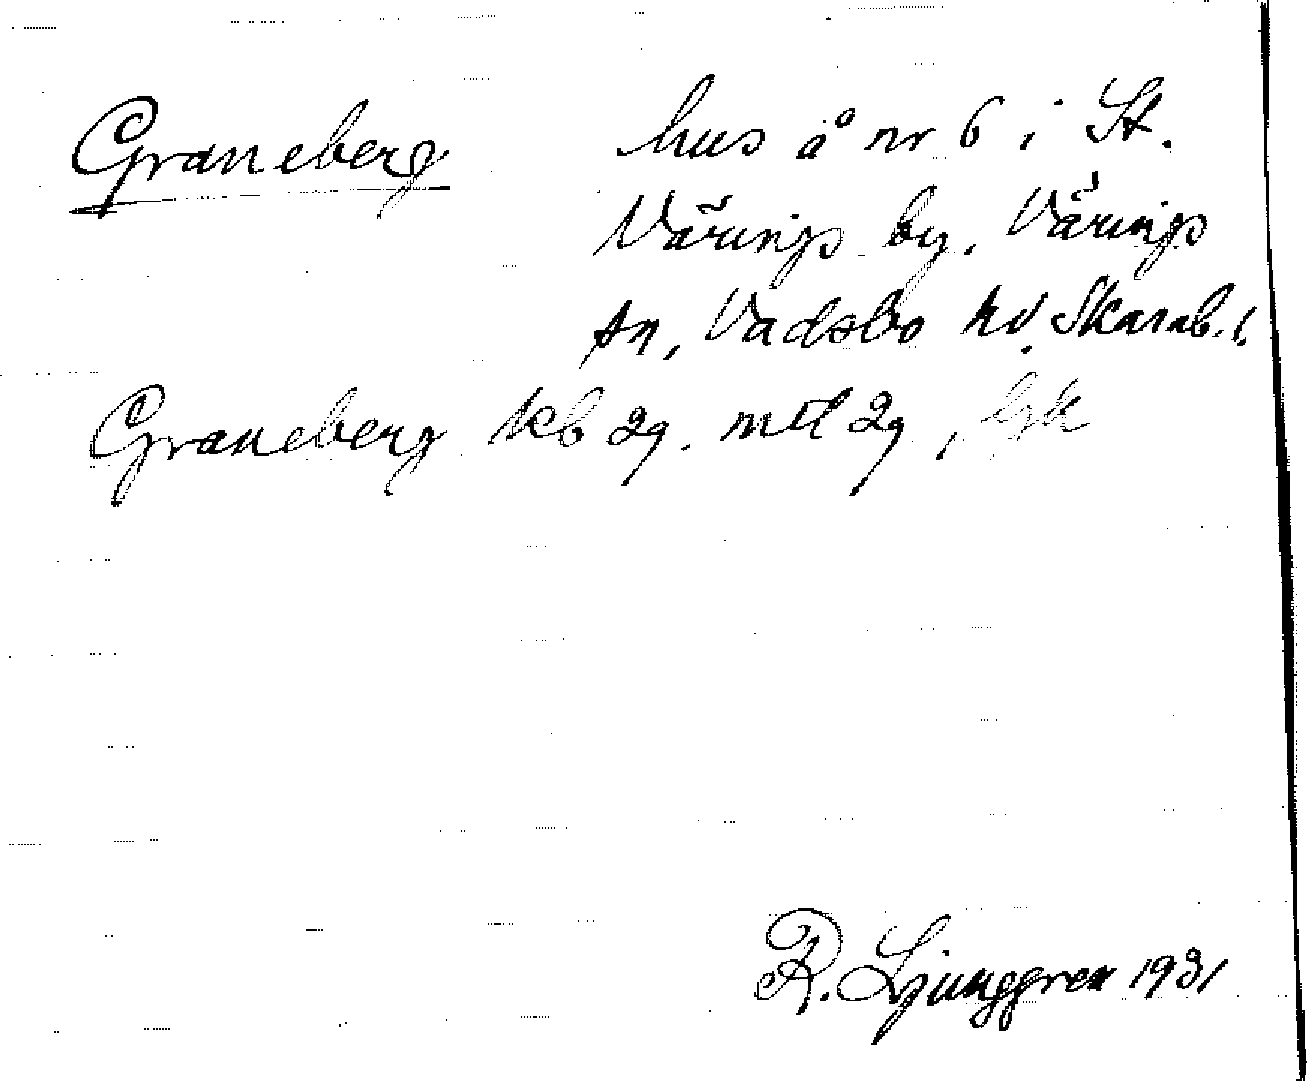 Graneberg hus å nr 6 i St.
Värings by, Värings
sn, Vadsbo hd Skarab. l.
Graneberg kb 29. mtl 29,
R. Ljunggren 1931